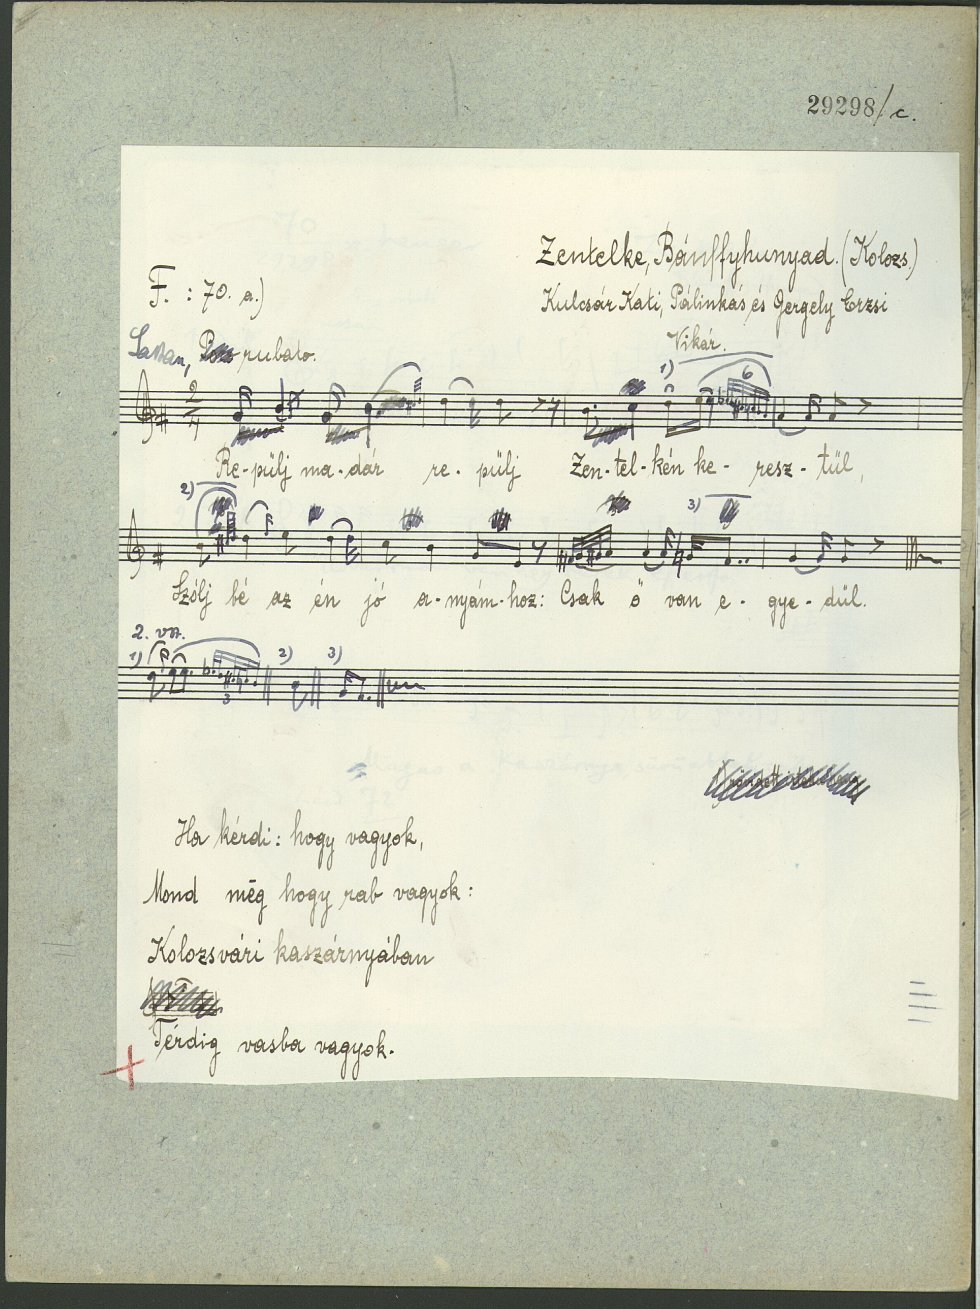 29298/c.
Zentelke, Bánffyhunyad. (Kolozs.)
F. : 70. a.)
Kulcsár Kati, Pálinkás és Gergely Erzsi
Vikár.
Lassan, rubato.
1) 6
2 4
Re-pülj ma-dár re-pülj Zen-tel-kén ke-resz-tül,
2) 3)
Szólj bé az én jó a-nyám-hoz: Csak ö van e-gye-dül.
2. vsz.
1) 2) 3)
3
Ha kérdi: hogy vagyok,
Mond még hogy rab vagyok:
Kolozsvári kaszárnyában
Térdig vasba vagyok.